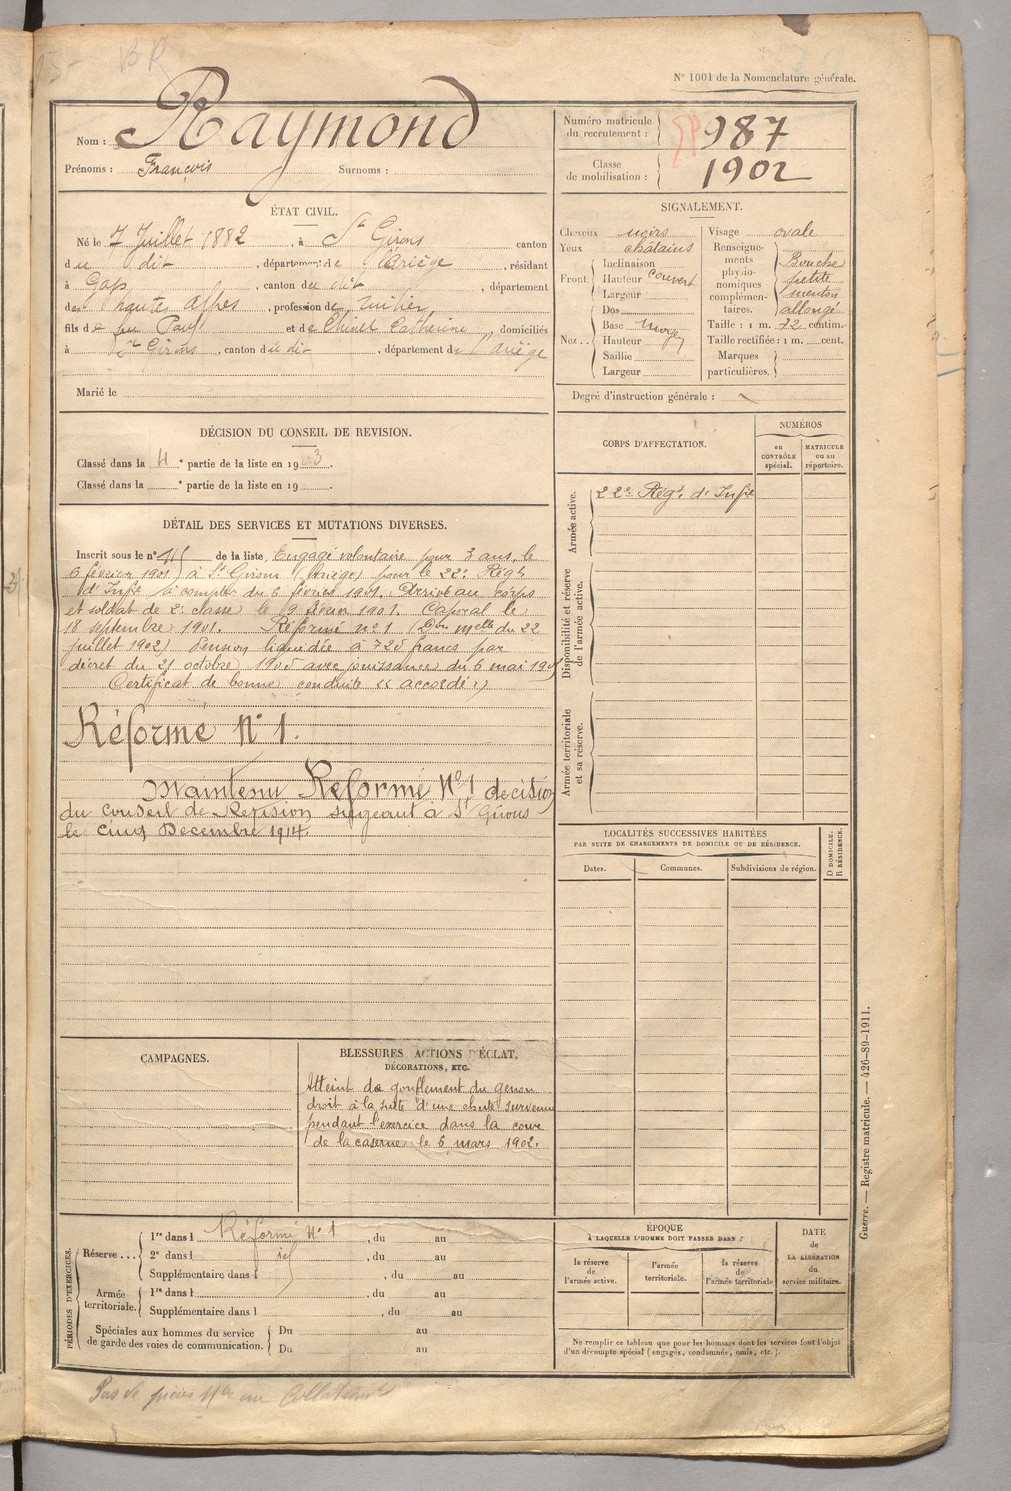 BR
N° 1001 de la Nomenclature générale.
Nom : Raymond
Prénoms : François Surnoms :
Numéro matricule du recrutement : 987
Classe de mobilisation : 1902
ÉTAT CIVIL.
Né le 7 Juillet 1882, à St Girons canton
du dit, département de l'Ariège, résidant
à Gap, canton du dit, département
des hautes alpes, profession de
fils de feu Paul et de Catherine, domiciliés
à St Girons, canton du dit, département de l'ariège
Marié le
SIGNALEMENT.
Cheveux noirs
Yeux châtains
Front
Inclinaison
Hauteur couvert
Largeur
Nez
Dos
Base moyen
Hauteur
Saillie
Largeur
Visage ovale
Renseignements physionomiques complémentaires.
Bouche
petite
menton
allongé
Taille : 1 m. 72 centim.
Taille rectifiée : 1 m. cent.
Marques particulières.
Degré d'instruction générale :
DÉCISION DU CONSEIL DE REVISION.
Classé dans la 4e partie de la liste en 1903.
Classé dans la e partie de la liste en 19 .
CORPS D'AFFECTATION.
NUMÉROS
au CONTRÔLE spécial.
MATRICULE ou au répertoire.
Armée active.
22e Régt d'Infie
Disponibilité et réserve de l'armée active.
Armée territoriale et sa réserve.
DÉTAIL DES SERVICES ET MUTATIONS DIVERSES.
Inscrit sous le n° de la liste Engagé volontaire pour 3 ans, le
6 février 1901 à St Girons (Ariège) pour le 22e Régt
d'Infie à compter du 6 février 1901. Arrivé au corps
et soldat de 2e classe le 9 février 1901. Caporal le
18 septembre 1901. Réformé n° 1 (Don melle du 22
juillet 1902) Pension liquidée à 725 francs par
décret du 21 octobre 1905 avec jouissance du 6 mai 1905
Certificat de bonne conduite « accordé »
Réformé N° 1.
Maintenu Réformé N° 1 décision
du conseil de Revision siégeant à St Girons
le cinq Decembre 1914
LOCALITÉS SUCCESSIVES HABITÉES
PAR SUITE DE CHANGEMENTS DE DOMICILE OU DE RÉSIDENCE.
Dates.
Communes.
Subdivisions de région.
D DOMICILE.
R RÉSIDENCE.
CAMPAGNES.
BLESSURES, ACTIONS D'ÉCLAT,
DÉCORATIONS, ETC.
Atteint de gonflement du genou
droit à la suite d'une chute survenue
pendant l'exercice dans la cour
de la caserne, le 6 mars 1902.
PÉRIODES D'EXERCICES.
Réserve...
1re dans l Réformé N° 1, du au
2e dans l , du au
Supplémentaire dans l , du au
Armée territoriale.
1re dans l , du au
Supplémentaire dans l , du au
Spéciales aux hommes du service de garde des voies de communication.
Du au
Du au
ÉPOQUE
À LAQUELLE L'HOMME DOIT PASSER DANS :
la réserve de l'armée active.
l'armée territoriale.
la réserve de l'armée territoriale
DATE de LA LIBÉRATION du service militaire.
Ne remplir ce tableau que pour les hommes dont les services font l'objet
d'un décompte spécial (engagés, condamnés, omis, etc.).
Guerre. — Registre matricule. — 426-89-1911.
Pas de pièces